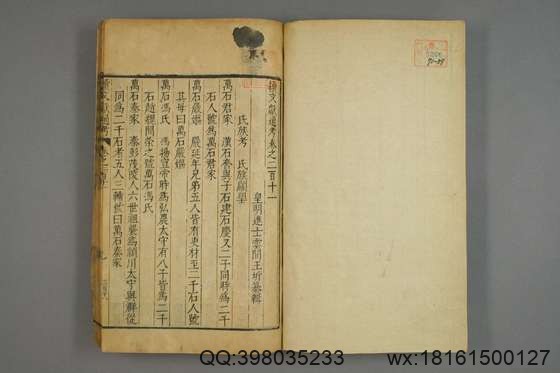 續文獻通考卷之二百十一
皇明進士雲間王圻纂輯
氏族考 氏族顯學
萬石君家 漢石奮與子石建石慶又二子同時為二千
石人號為萬石君家
萬石嚴嫗 嚴延年兄弟五人皆有吏材至二千石人號
其母曰萬石嚴嫗
萬石馮氏 馮揚宣帝時為弘農太守有八子皆為二千
石趙魏間榮之號萬石馮氏
萬石秦家 秦彭茂陵人六世祖襲為潁川太守與群從
同為二千石者五人三輔世曰萬石秦家
QQ:398035233
wx:18161500127